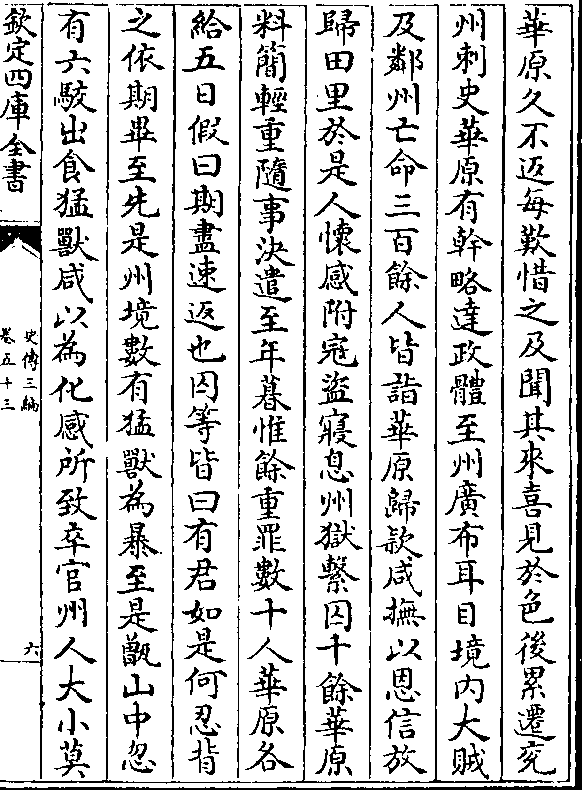 華原久不返每歎惜之及聞其來喜見於色後累遷兖
州刺史華原有幹略達政體至州廣布耳目境内大賊
及鄰州亡命三百餘人皆詣華原歸款咸撫以恩信放
歸田里於是人懷感附寇盜寢息州獄繫囚千餘華原
料簡輕重隨事決遣至年暮惟餘重罪數十人華原各
給五日假曰期盡速返也囚等皆曰有君如是何忍背
之依期畢至先是州境數有猛獸為暴至是甑山中忽
有六駮出食猛獸咸以為化感所致卒官州人大小莫
欽定四庫全書
史傳三編
卷五十三
六